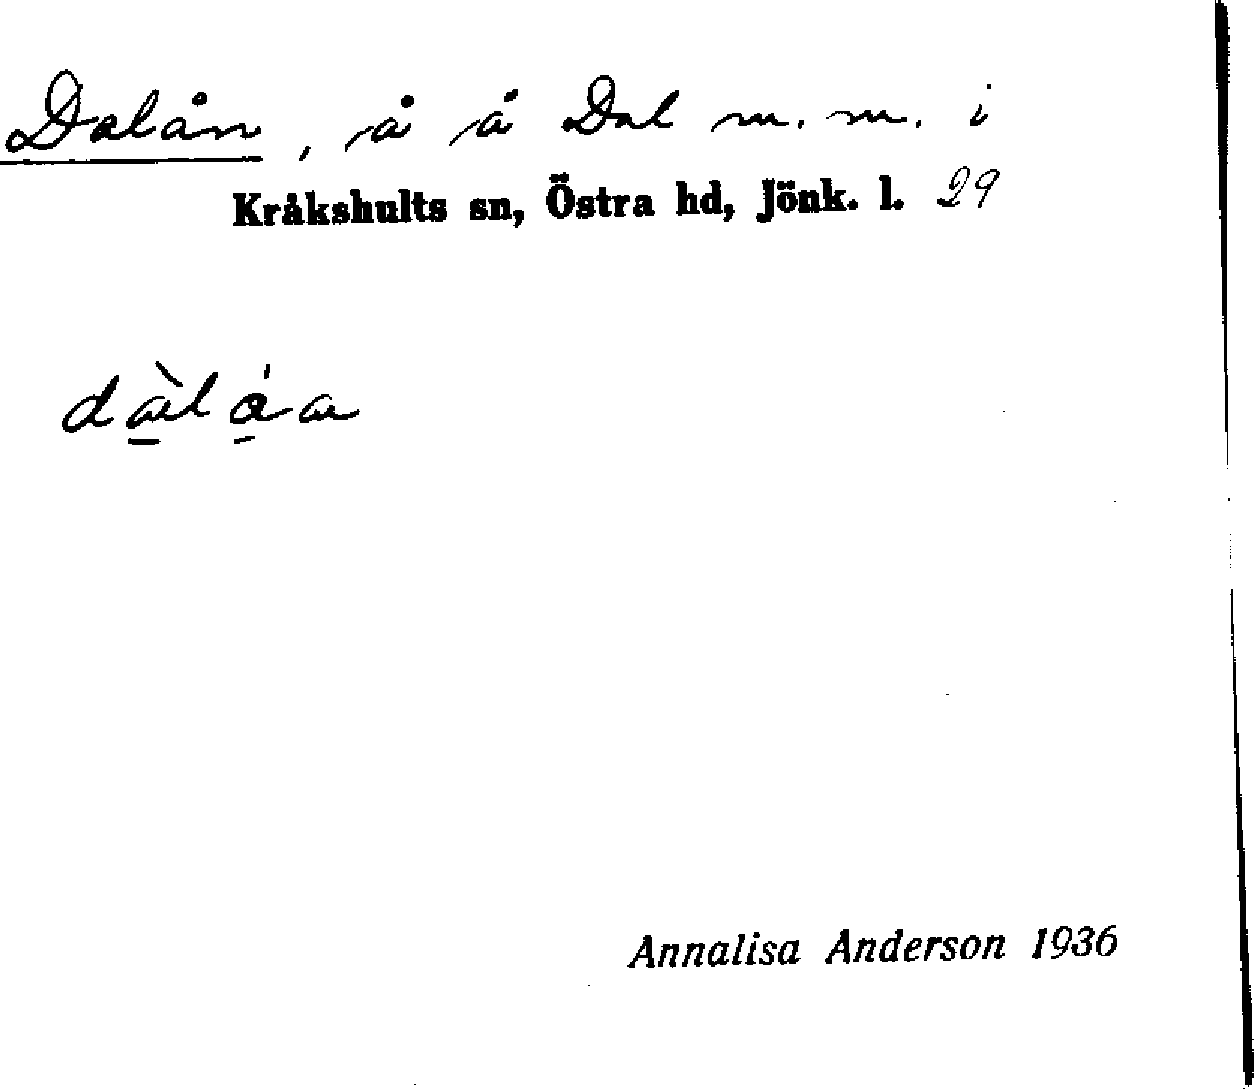 Dalån, å å Dal m.m. i
Kråkshults sn, Östra hd, Jönk. l. 29
dàláa
Annalisa Anderson 1936